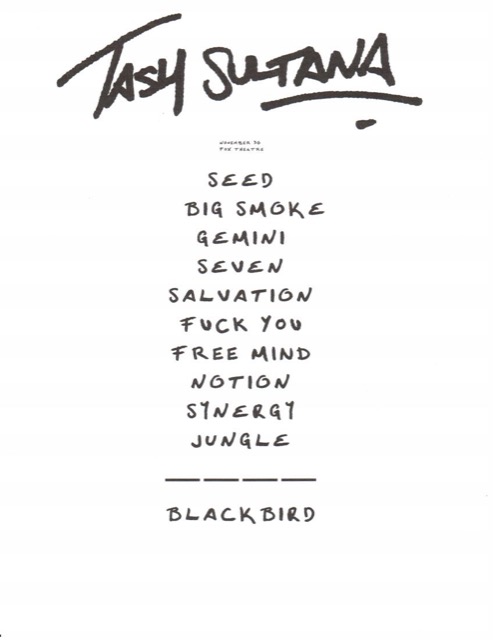 TASH SULTANA
NOVEMBER 30
FOX THEATRE
SEED
BIG SMOKE
GEMINI
SEVEN
SALVATION
FUCK YOU
FREE MIND
NOTION
SYNERGY
JUNGLE
BLACKBIRD